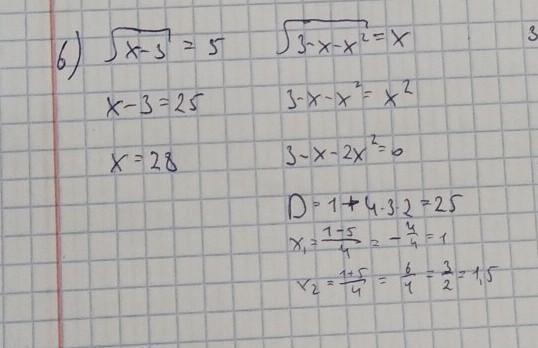 6) √(x-3) = 5
x-3=25
x=28
√(3-x-x²) = x
3-x-x² = x²
3-x-2x²=0
D=1+4·3·2=25
x₁=(1-5)/4 = -4/4 = 1
x₂=(1+5)/4 = 6/4 = 3/2 = 1,5
3